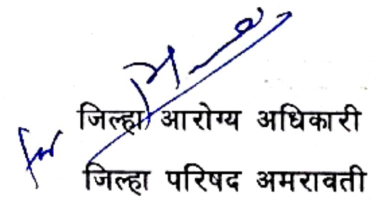 for
जिल्हा आरोग्य अधिकारी
जिल्हा परिषद अमरावती